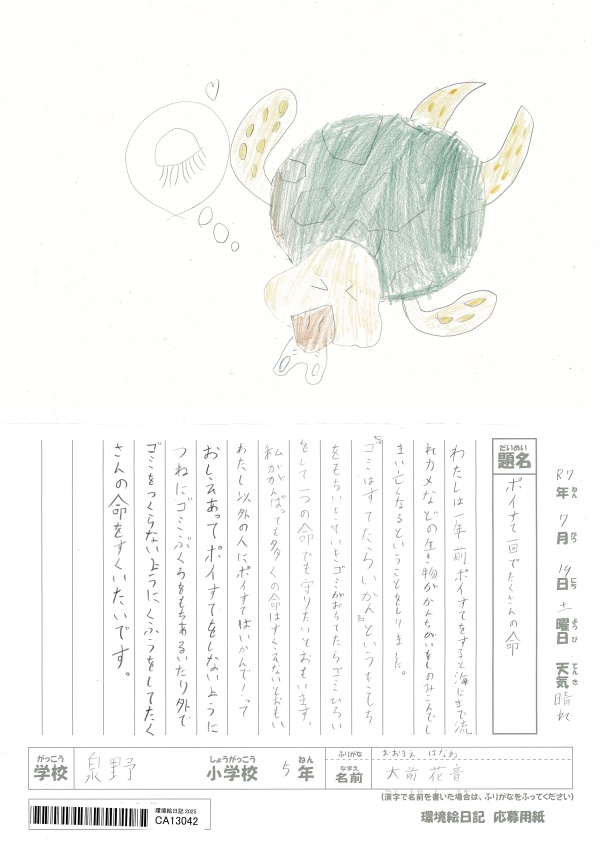 R7年ねん 7月がつ 19日にち 土曜日ようび 天気てんき 晴れ
だいめい
題名
ポイすて一回でたくさんの命
わたしは一年前ポイすてをすると海にまで流
れカメなどの生き物がかんちがいをしのみこんでし
まい亡くなるということをしりました。
「ゴミはすてたらいかん」というきもち
をもちいきすいきゴミがおちてたらゴミひろい
をして一つの命でも守りたいとおもいます。
私ががんばっても多くの命はすくえないとおもい
わたし以外の人にポイすてはいかんで!って
おしえあってポイすてをしないように
つねにゴミぶくろをもちあるいたり外で
ゴミをつくらないようにくふうをしてたく
さんの命をすくいたいです。
がっこう
学校
泉野
しょうがっこう
小学校
5年ねん
ふりがな
おおまえ はなね
なまえ
名前
大前 花音
(漢字で名前を書いた場合は、ふりがなをふってください)
環境絵日記 応募用紙
環境絵日記 2025
CA13042